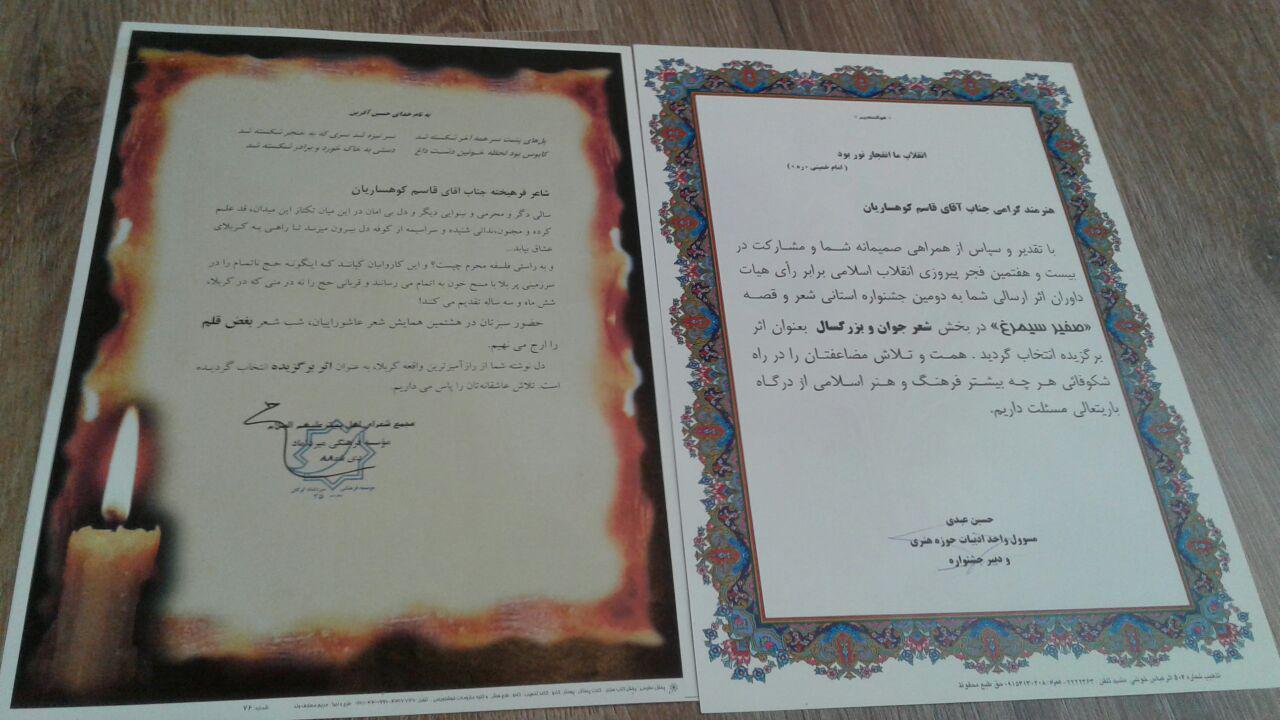 به نام خدای حسین آفرین
پل‌های پشت سر همه آخر شکسته شد
سر نیزه شد سری که به خنجر شکسته شد
کابوس بود لحظه خونین دست داغ
دستی به خاک خورد و برادر شکسته شد
شاعر فرهیخته جناب آقای قاسم کوهساریان
سالی دگر و محرمی و نینوایی دیگر و دل بی امان در این میان تکتاز این میدان، قد علم
کرده و مجنون،ندائی شنیده و سراسیمه از کوفه دل بیرون میرسد تا راهی به کربلای
عشاق بیابد...
و به راستی فلسفه محرم چیست؟ و این کاروانیان کیانند که اینگونه حج ناتمام را در
سرزمینی پر بلا با مسح خون به اتمام می رسانند و قربانی حج را نه در منی که در کربلا،
شش ماه و سه ساله تقدیم می کنند!
حضور سبزتان در هشتمین همایش شعر عاشوراییان، شب شعر بغض قلم
را ارج می نهیم.
دل نوشته شما از رازآمیزترین واقعه کربلا، به عنوان اثر برگزیده انتخاب گردیده
است. تلاش عاشقانه‌تان را پاس می داریم.
مجمع شعرای اهل
مؤسسه فرهنگی میرداماد
انقلاب ما انفجار نور بود
( امام خمینی «ره» )
هنرمند گرامی جناب آقای قاسم کوهساریان
با تقدیر و سپاس از همراهی صمیمانه شما و مشارکت در
بیست و هفتمین فجر پیروزی انقلاب اسلامی برابر رأی هیات
داوران اثر ارسالی شما به دومین جشنواره استانی شعر و قصه
«صفیر سیمرغ» در بخش شعر جوان و بزرگسال بعنوان اثر
برگزیده انتخاب گردید . همت و تلاش مضاعفتان را در راه
شکوفائی هر چه بیشتر فرهنگ و هنر اسلامی از درگاه
باریتعالی مسئلت داریم.
حسین عبدی
مسوول واحد ادبیات حوزه هنری
و دبیر جشنواره